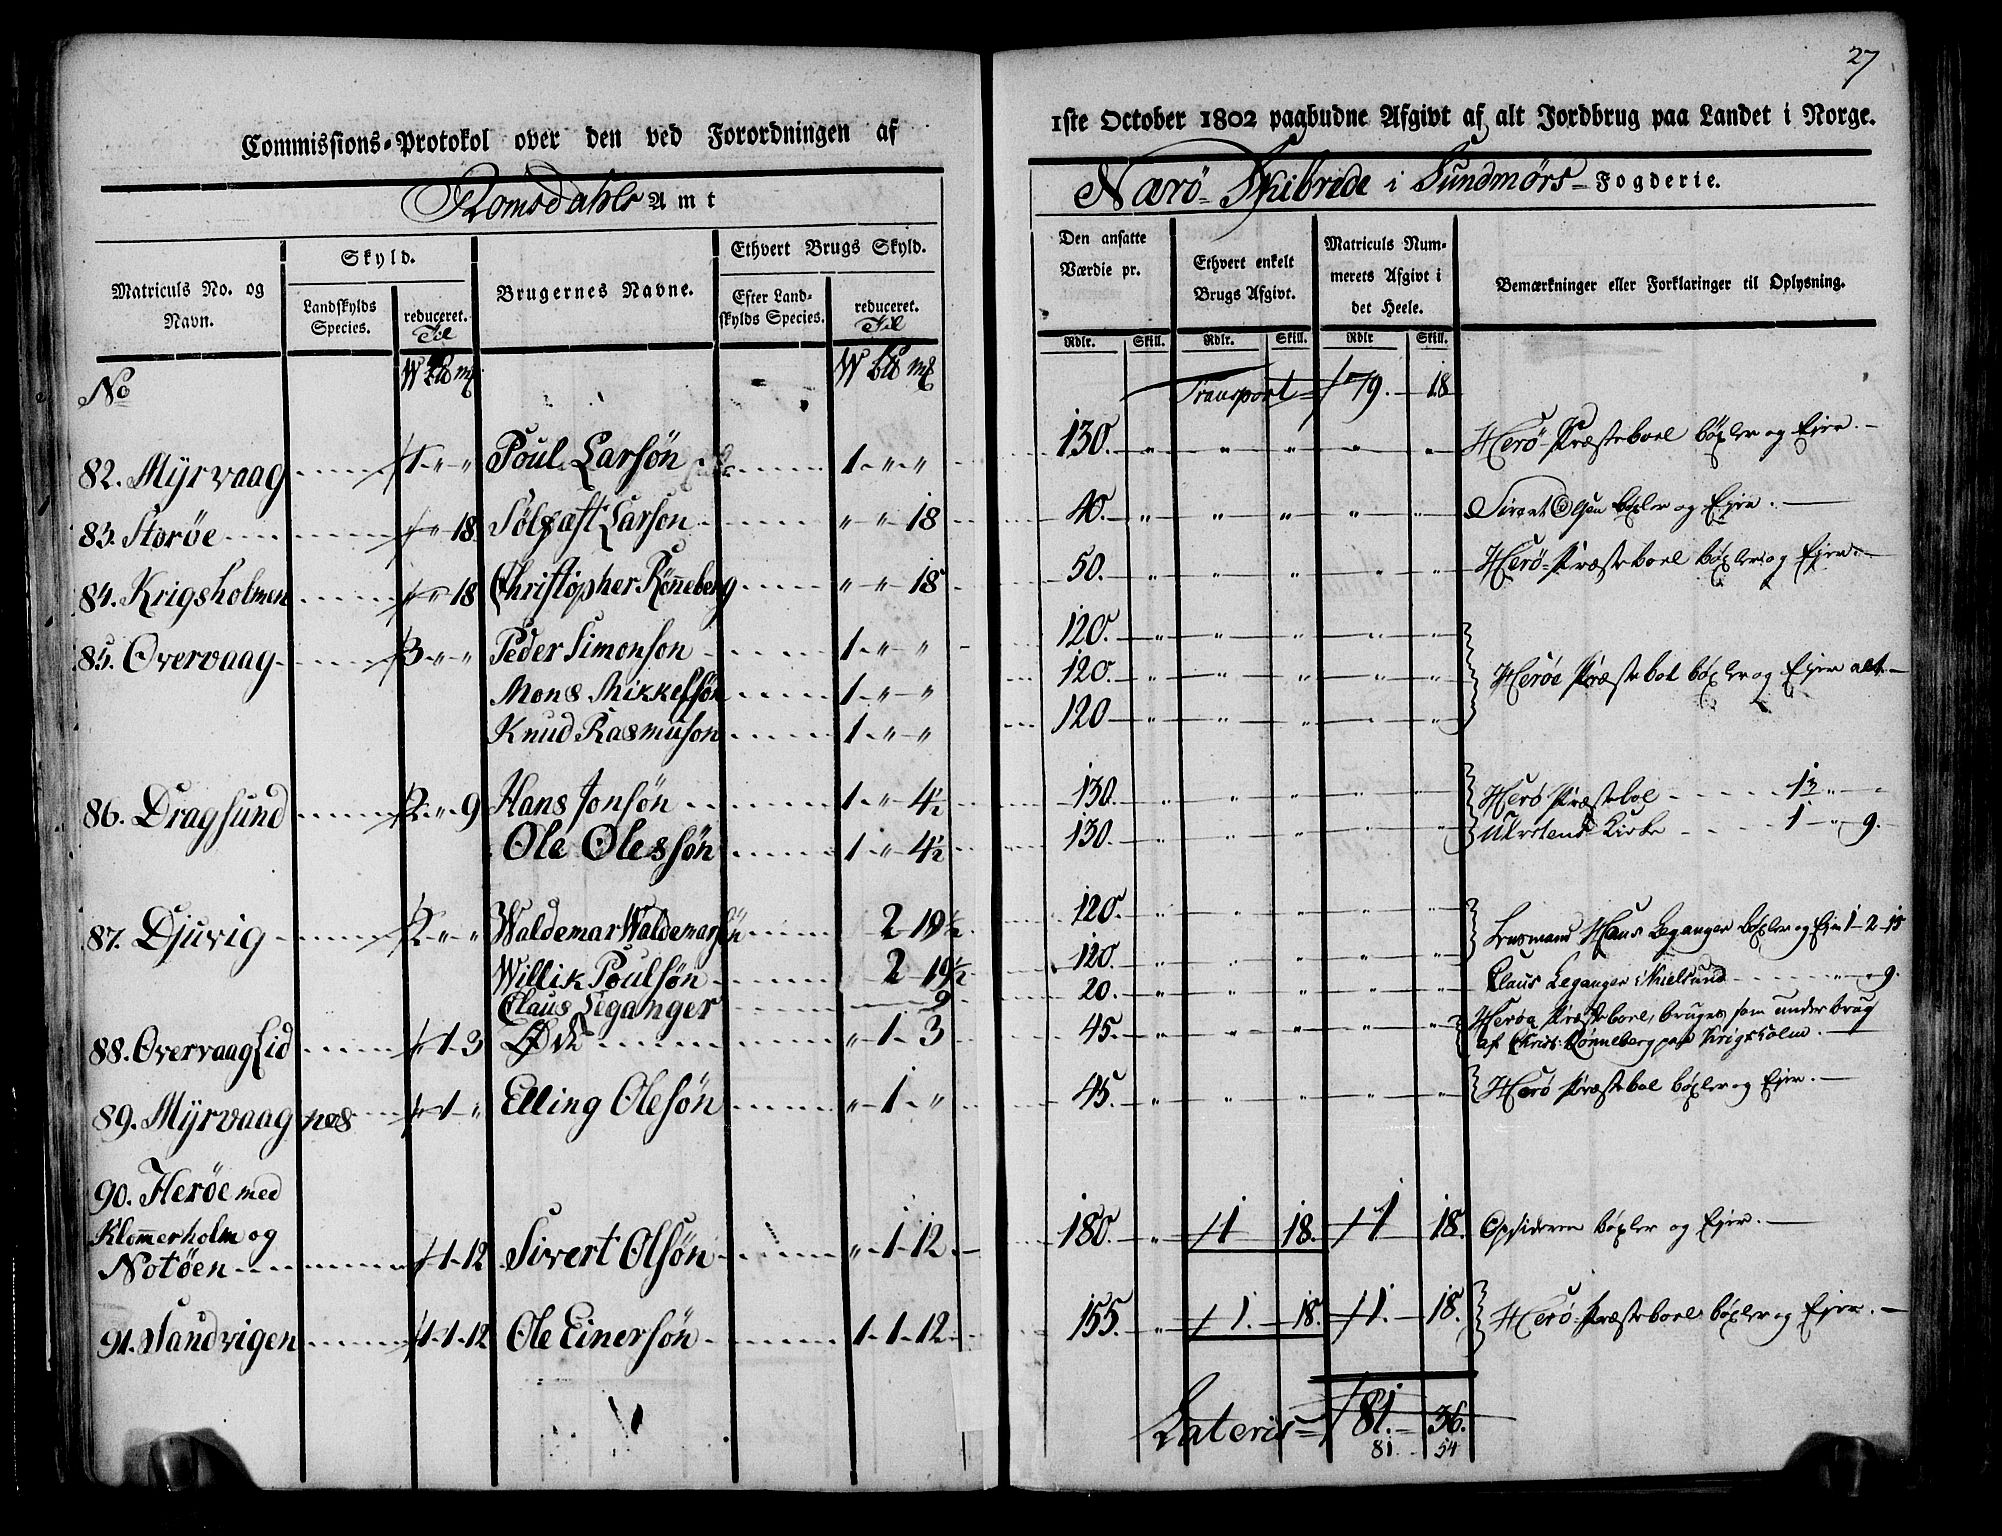 27
Commissions-Protokol over den ved Forordningen af 1ste October 1802 paabudne Afgivt af alt Jordbrug paa Landet i Norge.
Romsdahls Amt
Nærö Skibrede i Sundmörs Fogderie.
Matriculs No. og Navn.
Skyld.
Landskylds Species.
reduceret. Til
Brugernes Navne.
Ethvert Brugs Skyld.
Efter Landskylds Species.
reduceret. Til
Den ansatte Værdie pr.
Ethvert enkelt Brugs Afgivt.
Matriculs Nummerets Afgivt i det Heele.
Bemærkninger eller Forklaringer til Oplysning.
Rdlr. Skill. Rdlr. Skill. Rdlr Skill.
No
Transport 79. 18
82. Myrvaag 1 " " Poul Larsön 1 " " 130. " " " " " Herö Præsteboel böxler og Ejer.
83. Storöe " " 18 Sölfæst Larson " " 18 40. " " " " " Sivert Olsen böxler og Ejer.
84. Krigsholmen " " 18 Christopher Rönneberg " " 18 50. " " " " " Herö Præsteboel böxler og Ejer.
85. Overvaag 3 " " Peder Simonson 1 " " 120. " " " " "
Mons Mikkelsön 1 " " 120. " " " " " Heröe Præstebol böxler og Ejer alt
Knud Rasmuson 1 " " 120 " " " " "
86. Dragsund 2 " 9 Hans Jonsön 1 " 4½ 130. " " " " " Herö Præstebol
Ole Olessön 1 " 4½ 130. " " " " " Ulvstens Kirke 1 " 9.
87. Djuvig 2 " " Waldemar Waldemarsön 2 19½ 120. " " " " " Lensmand Hans Leganger böxler og Ejer 1-2-15
Willik Poulsön 2 19½ 120. " " " " " Claus Leganger i " 9.
Claus Leganger 9 20. " " " " "
88. Overvaaglid " 1 3 Öde " 1 3 45. " " " " " Heröe Præsteboel, bruges som underbrug
af Christ: Rönneberg paa Krigsholm.
89. Myrvaagnes " 1 " Elling Olesön " 1 " 45. " " " " " Herö Præstebol böxler og Ejer.
90. Heröe med
Klommerholm og
Notöen 1 12 Sivert Olsön " 1 12 180. " 1 18. 1 18. Opsideren böxler og Ejer.
91. Sandvigen 1 1 12 Ole Einersön 1 1 12 155. " 1. 18. 1. 18. Herö Præsteboel böxler og Ejer.
Lateris 81. 36.
81. 54